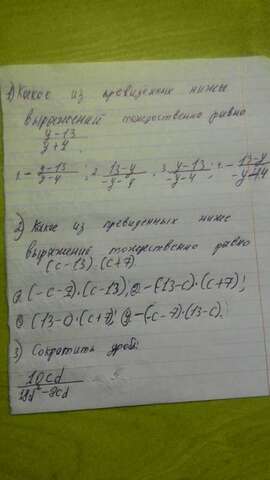 1) Какое из приведенных ниже
выражений тождественно равно
y-13
y+4
1. - y-13 / y-4 ; 2. 13-y / -y-y ; 3. y-13 / -y-4 ; 4. - 13-y / -y+4
2) Какое из приведенных ниже
выражений тождественно равно
(c-13)·(c+7)
(-c-7)·(c-13), -(13-c)·(c+7);
(13-c)·(c+7); -(-c-7)·(13-c).
3) Сократить дробь:
10cd